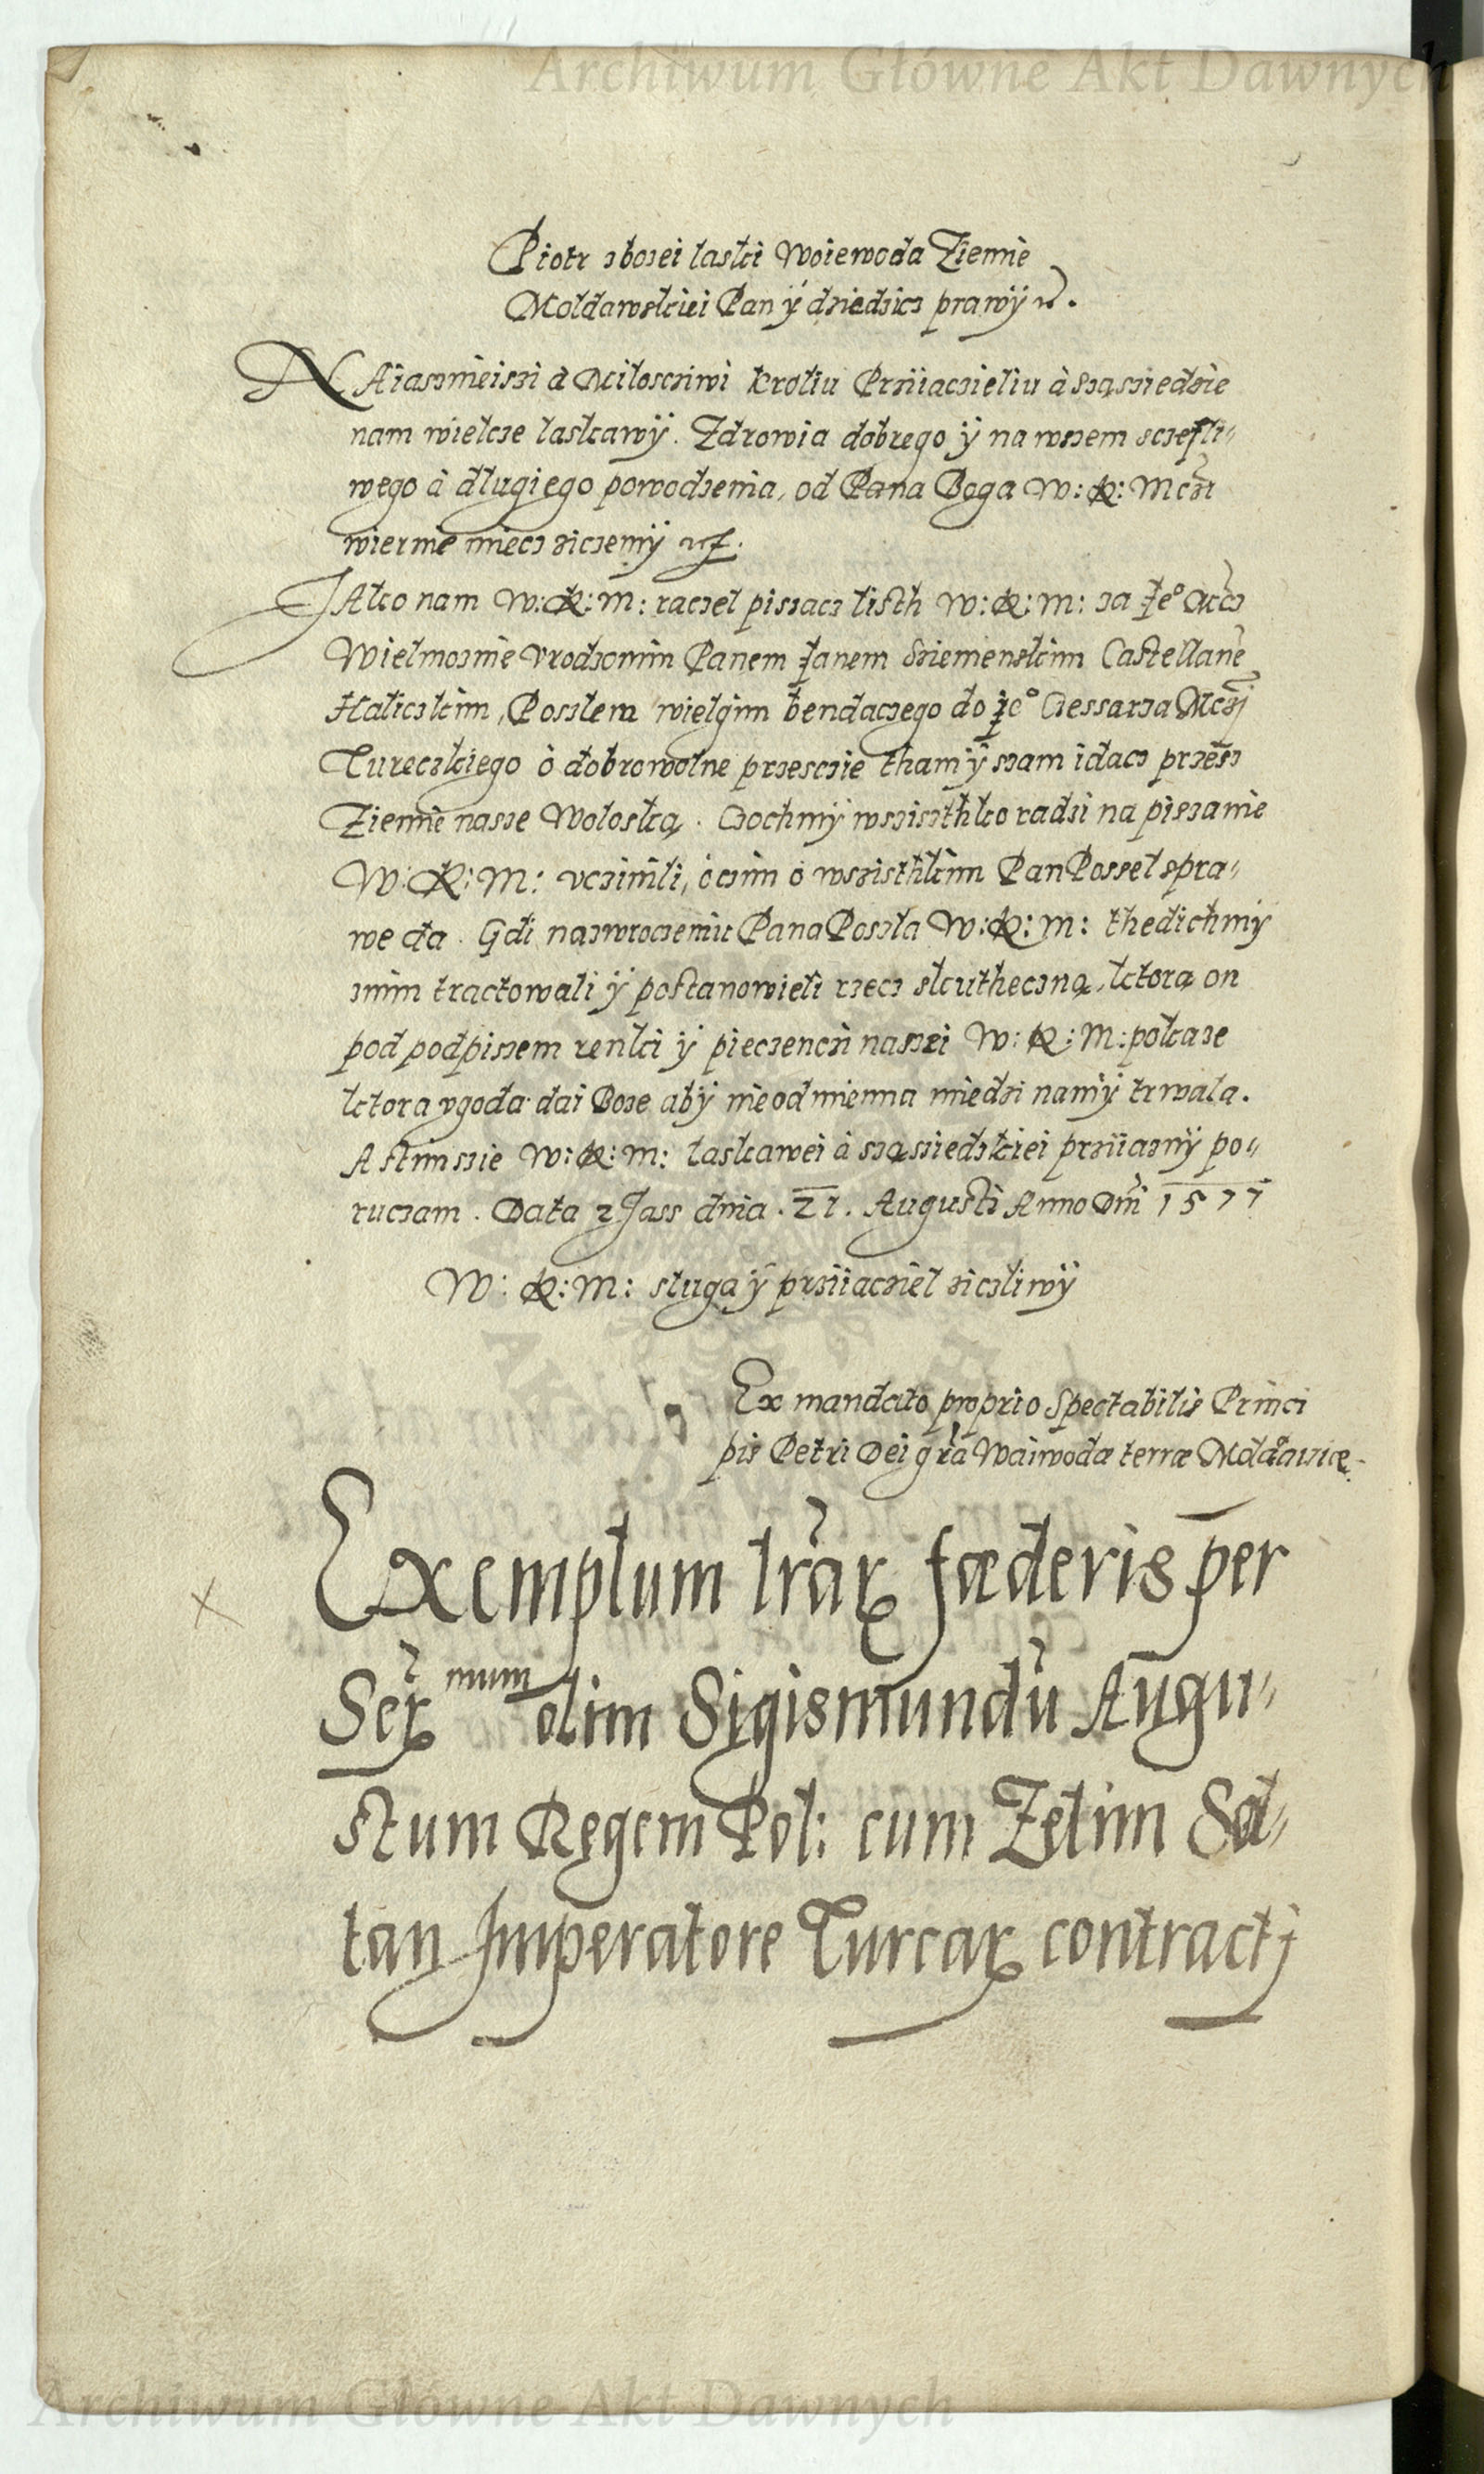 Archiwum Główne Akt Dawnych
Piotr zbozei laski Woiewoda Ziemie
Moldawskiei Pan ÿ dziedzicz prawÿ
NAiasznieiszi à Miloscziwi Kroliu Prziiaczieliu à Szasziedzie
nam wielcze laskawÿ. Zdrowia dobrego ÿ na wszem sczesli„
wego à długiego powodzenia, od Pana Boga W: K: Mczi
wiernie miecz ziczemÿ
JAko nam W: K: M: raczel piszacz listh W: K: M: za
Wielmoznie Vrodzonim Panem Janem Sziemenskim Castellane
Haliczkim, Poszlem wielgim bendaczego do Jeº Czessarza Mczi
Tureczkiego o dobrowolne przesczie tham ÿ szam idacz przesz
Ziemie nasze Woloską. Czochmÿ wszisthko radzi na piszanie
W: K: M: vczinili, o czim o wszisthkim Pan Possel spra„
we da. Gdi nazwroczeniu Pana Poszla W: K: M: thedichmÿ
znim tractowali ÿ postanowieli rzecz skutheczną, ktorą on
pod podpiszem renki ÿ pieczenczi naszei W: K: M: pokaze
ktora vgoda dai Boze abÿ nieodmienna miedzi namÿ trwala.
A stim szie W: K: M: laskawei à szasziedzkiei prziiaznÿ po„
ruczam. Data z Jass dnia . 21. Augusti Anno Dni 1577
W: K: M: sluga ÿ prziiacziel zicżliwÿ
Ex mandato proprio Spectabilis Princi
pis Petri Dei gra Waiwodæ terræ Moldaviæ.
Exemplum lrar fœderis per
Ser mum olim Sigismundu Augu„
stum Regem Pol: cum Zelim Sol„
tan Imperatore Turcar contractj
Archiwum Główne Akt Dawnych